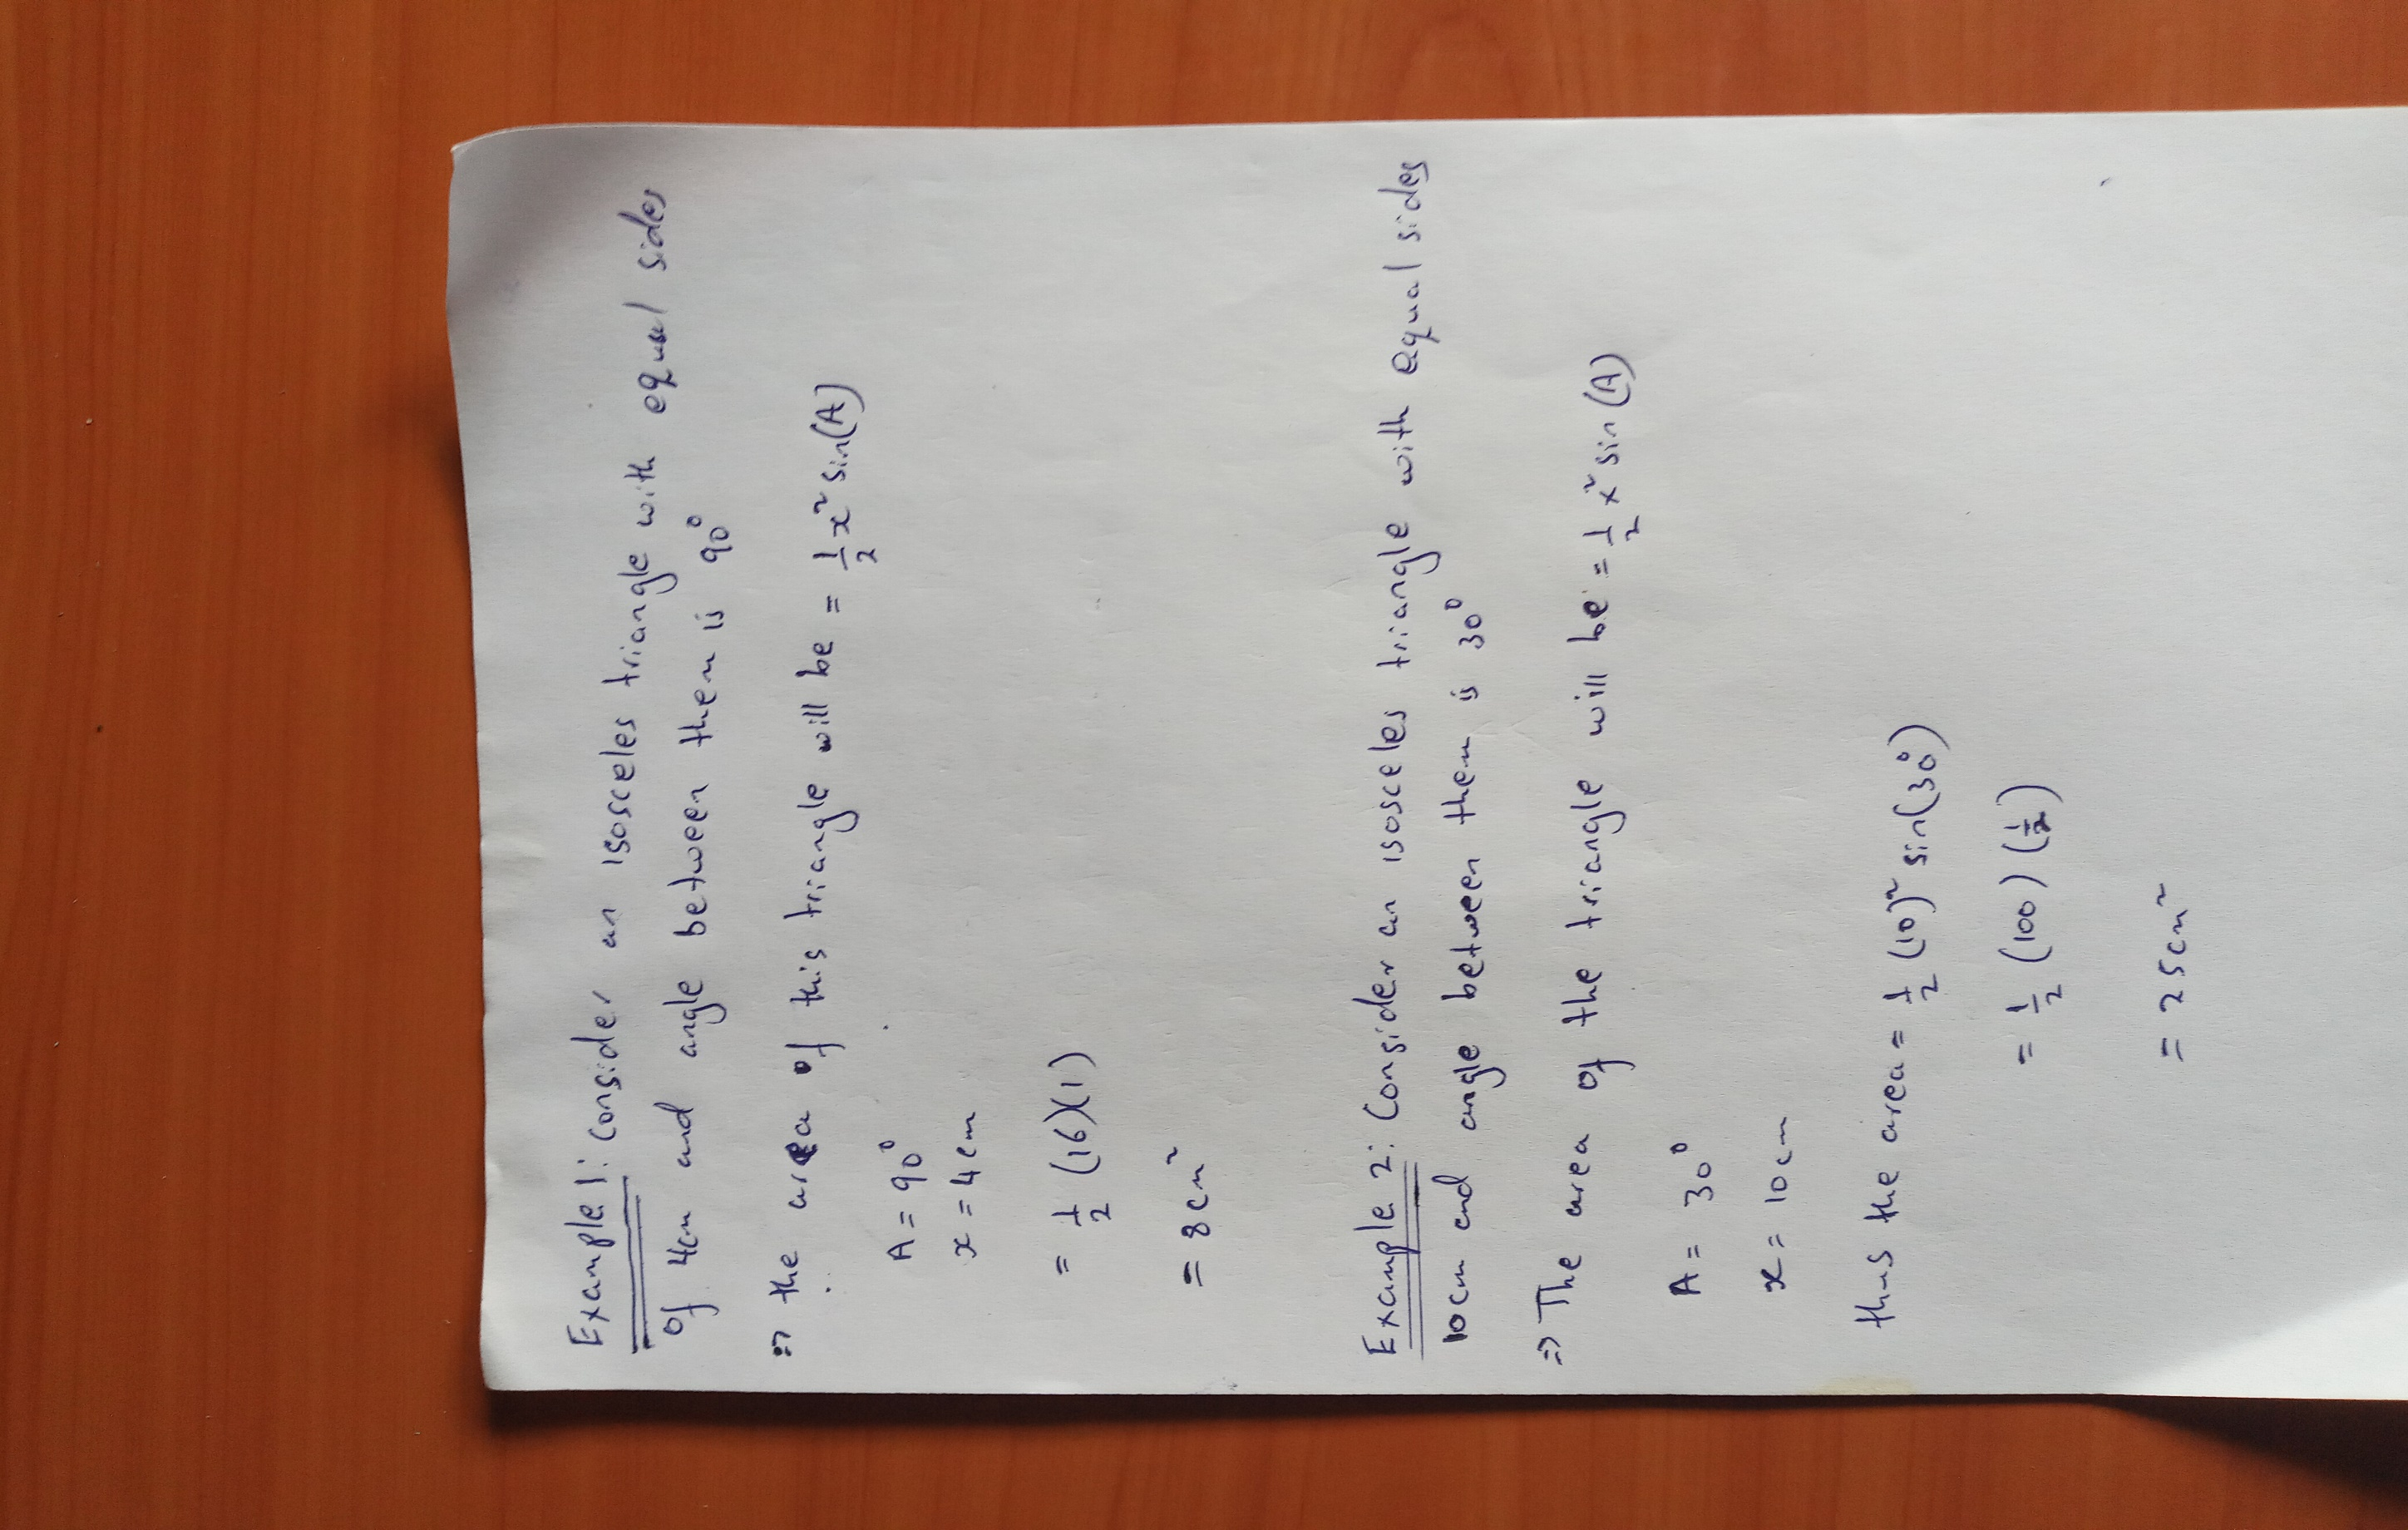 Example 1: consider an isosceles triangle with equal sides
of 4cm and angle between them is 90°
⇒ the area of this triangle will be = 1/2 x² sin(A)
A = 90°
x = 4cm
= 1/2 (16)(1)
= 8cm²
Example 2: Consider an isosceles triangle with equal sides
10cm and angle between them is 30°
⇒ The area of the triangle will be = 1/2 x² sin(A)
A = 30°
x = 10cm
thus the area = 1/2 (10)² sin(30°)
= 1/2 (100) (1/2)
= 25cm²